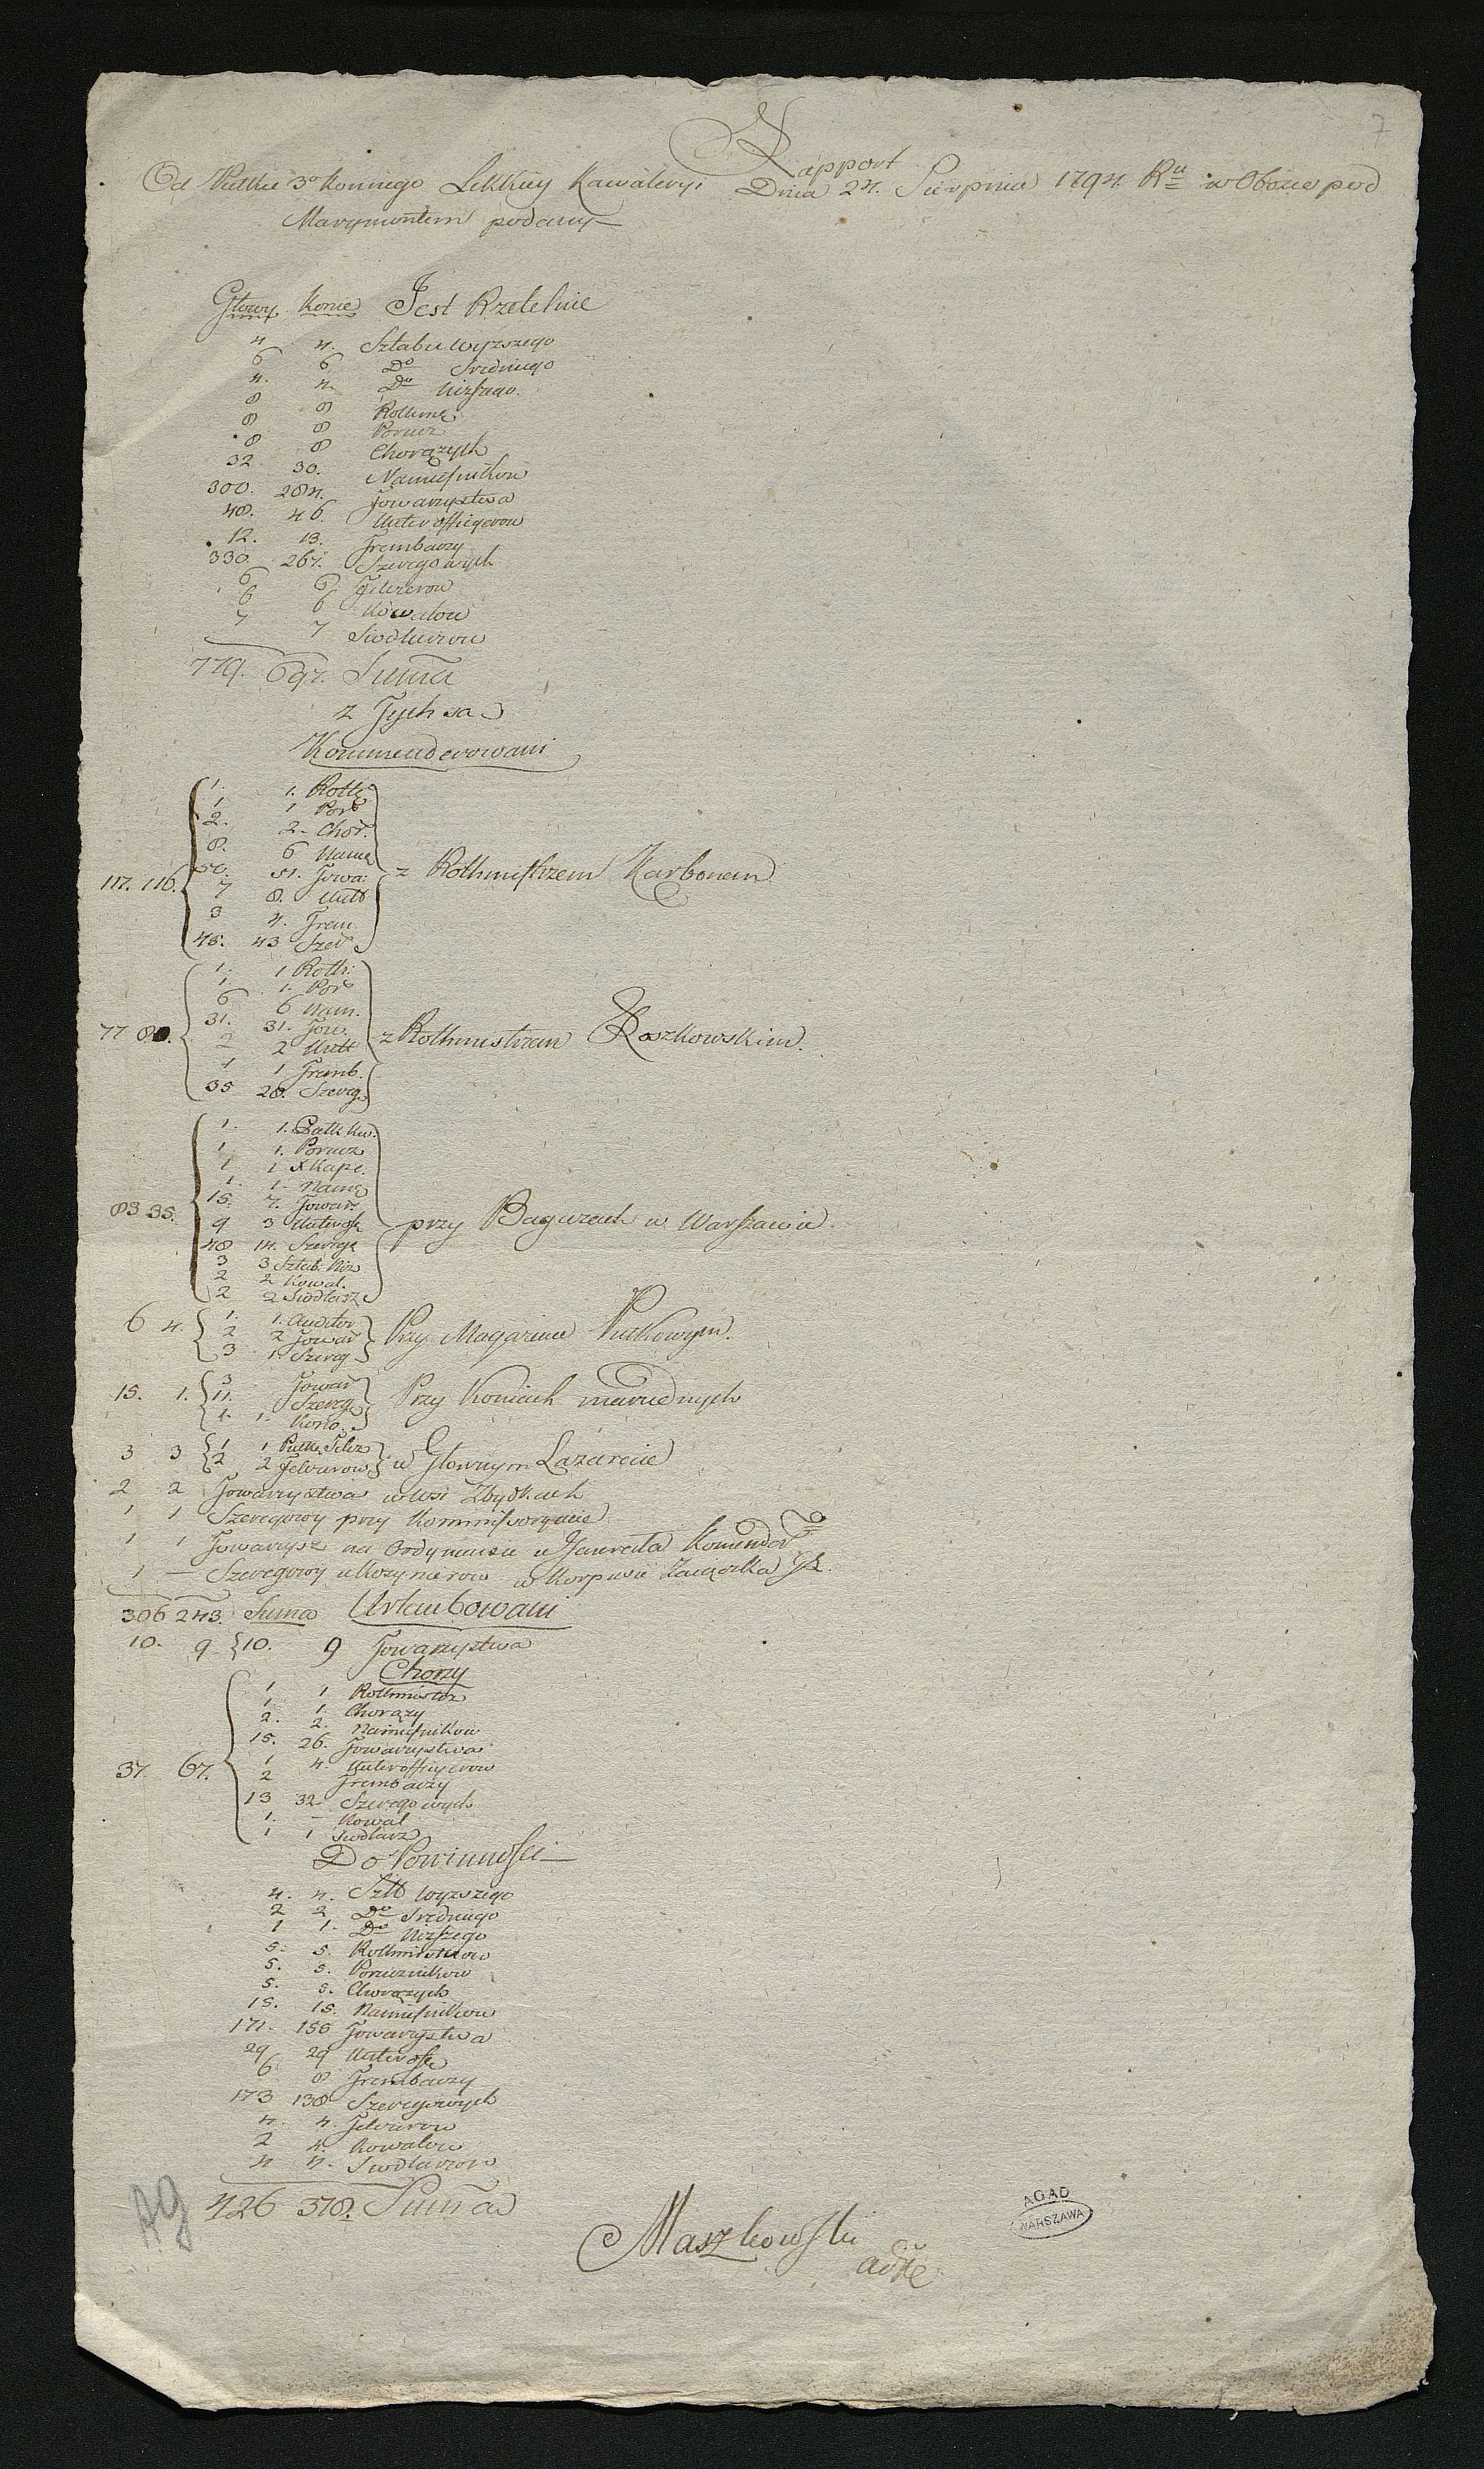 7
Rapport
Od Pułku 3º Konnego Lekkiey Kawaleryi Dnia 24. Sierpnia 1794 Ru w Obozie pod
Marymontem podany
Głowy Konie Jest Rzetelnie
4 4. Sztabu wyzszego
6 6 Do Sredniego
4. 4. Do Nizszego.
8 8 Rothmę
8 8 Porucz
8 8 Chorązych
32 30. Namiesnikow
300. 284. Towarzystwa
48. 46. Unterofficyerow
12. 13. Trembaczy
330 267. Szeregowych
6 6 Felczerow
6 6 Kowalow
7 7 Siodlarzow
779. 697. Suma
z Tych są
Kommenderowani
1. 1. Rotłę
1 1 Por
2. 2. Chor.
8. 6 Namę
50. 51. Towa:
117. 116. z Rothmistrzem Karbonem
7 8. Untt
3 4. Trem
45. 43 Szer
1. 1 Roth:
1 1. Por
6 6 Nam.
31. 31. Tow.
77 80. z Rothmistrzem Roszkowskim.
2 2 Untt
1 1 Tremb.
35 28. Szereg
1. 1. Pułk Kw.
1 1. Porucz
1 1 X Kape.
1. 1. Namę
15. 7. Towar.
83 35. przy Bagazach w Warszawie.
9 3 Unteroff
48 14. Szereg
3 3 Sztab. Niz
2 2 Kowal.
2 2 Siodlarz
1. 1. Auditor
6 4. 2 2 Towar Przy Magazinie Pułkowym.
3 1. Szereg
3 Towar
15. 1. 11. Szereg Przy Koniach
1. 1. Kono.
3 3 1 1 Pułk Felcz
2 2 Felczerow w Głownym Lazarecie
2 2 Towarzystwa we wsi Zbytkach
1 1 Szeregowy przy Kommissoryacie
1 1 Towarzysz na Ordynansie u Jenerała Komender
1 — Szeregowy u Kozynierow w Korpusie Zaiączka
306 243. Suma Urlaubowani
10. 9 10. 9 Towarzystwa
Chorzy
1 1 Rothmistrz
1. 1. Chorązy
2. 2. Namiesnikow
15. 26. Towarzystwa
37. 67. 1 4. Unterofficyerow
2 Trembaczy
13 32 Szeregowych
1. — Kowal
1 1 Siodlarz
Do Powinnosci
4. 4. Sztt Wyzszego
2 2 Do Sredniego
1 1. Do Nizszego
5. 5. Rothmistrzow
5. 5. Porucznikow
5. 5. Chorązych
15. 15. Namiesnikow
171. 156 Towarzystwa
29 29 Unteroff
6 8 Trembaczy
173 138 Szeregowych
4. 4. Felczerow
2 4. Kowalow
4 4. Siodlarzow
426 378. Suma
Ag
Maszkowski
AGAD
WARSZAWA